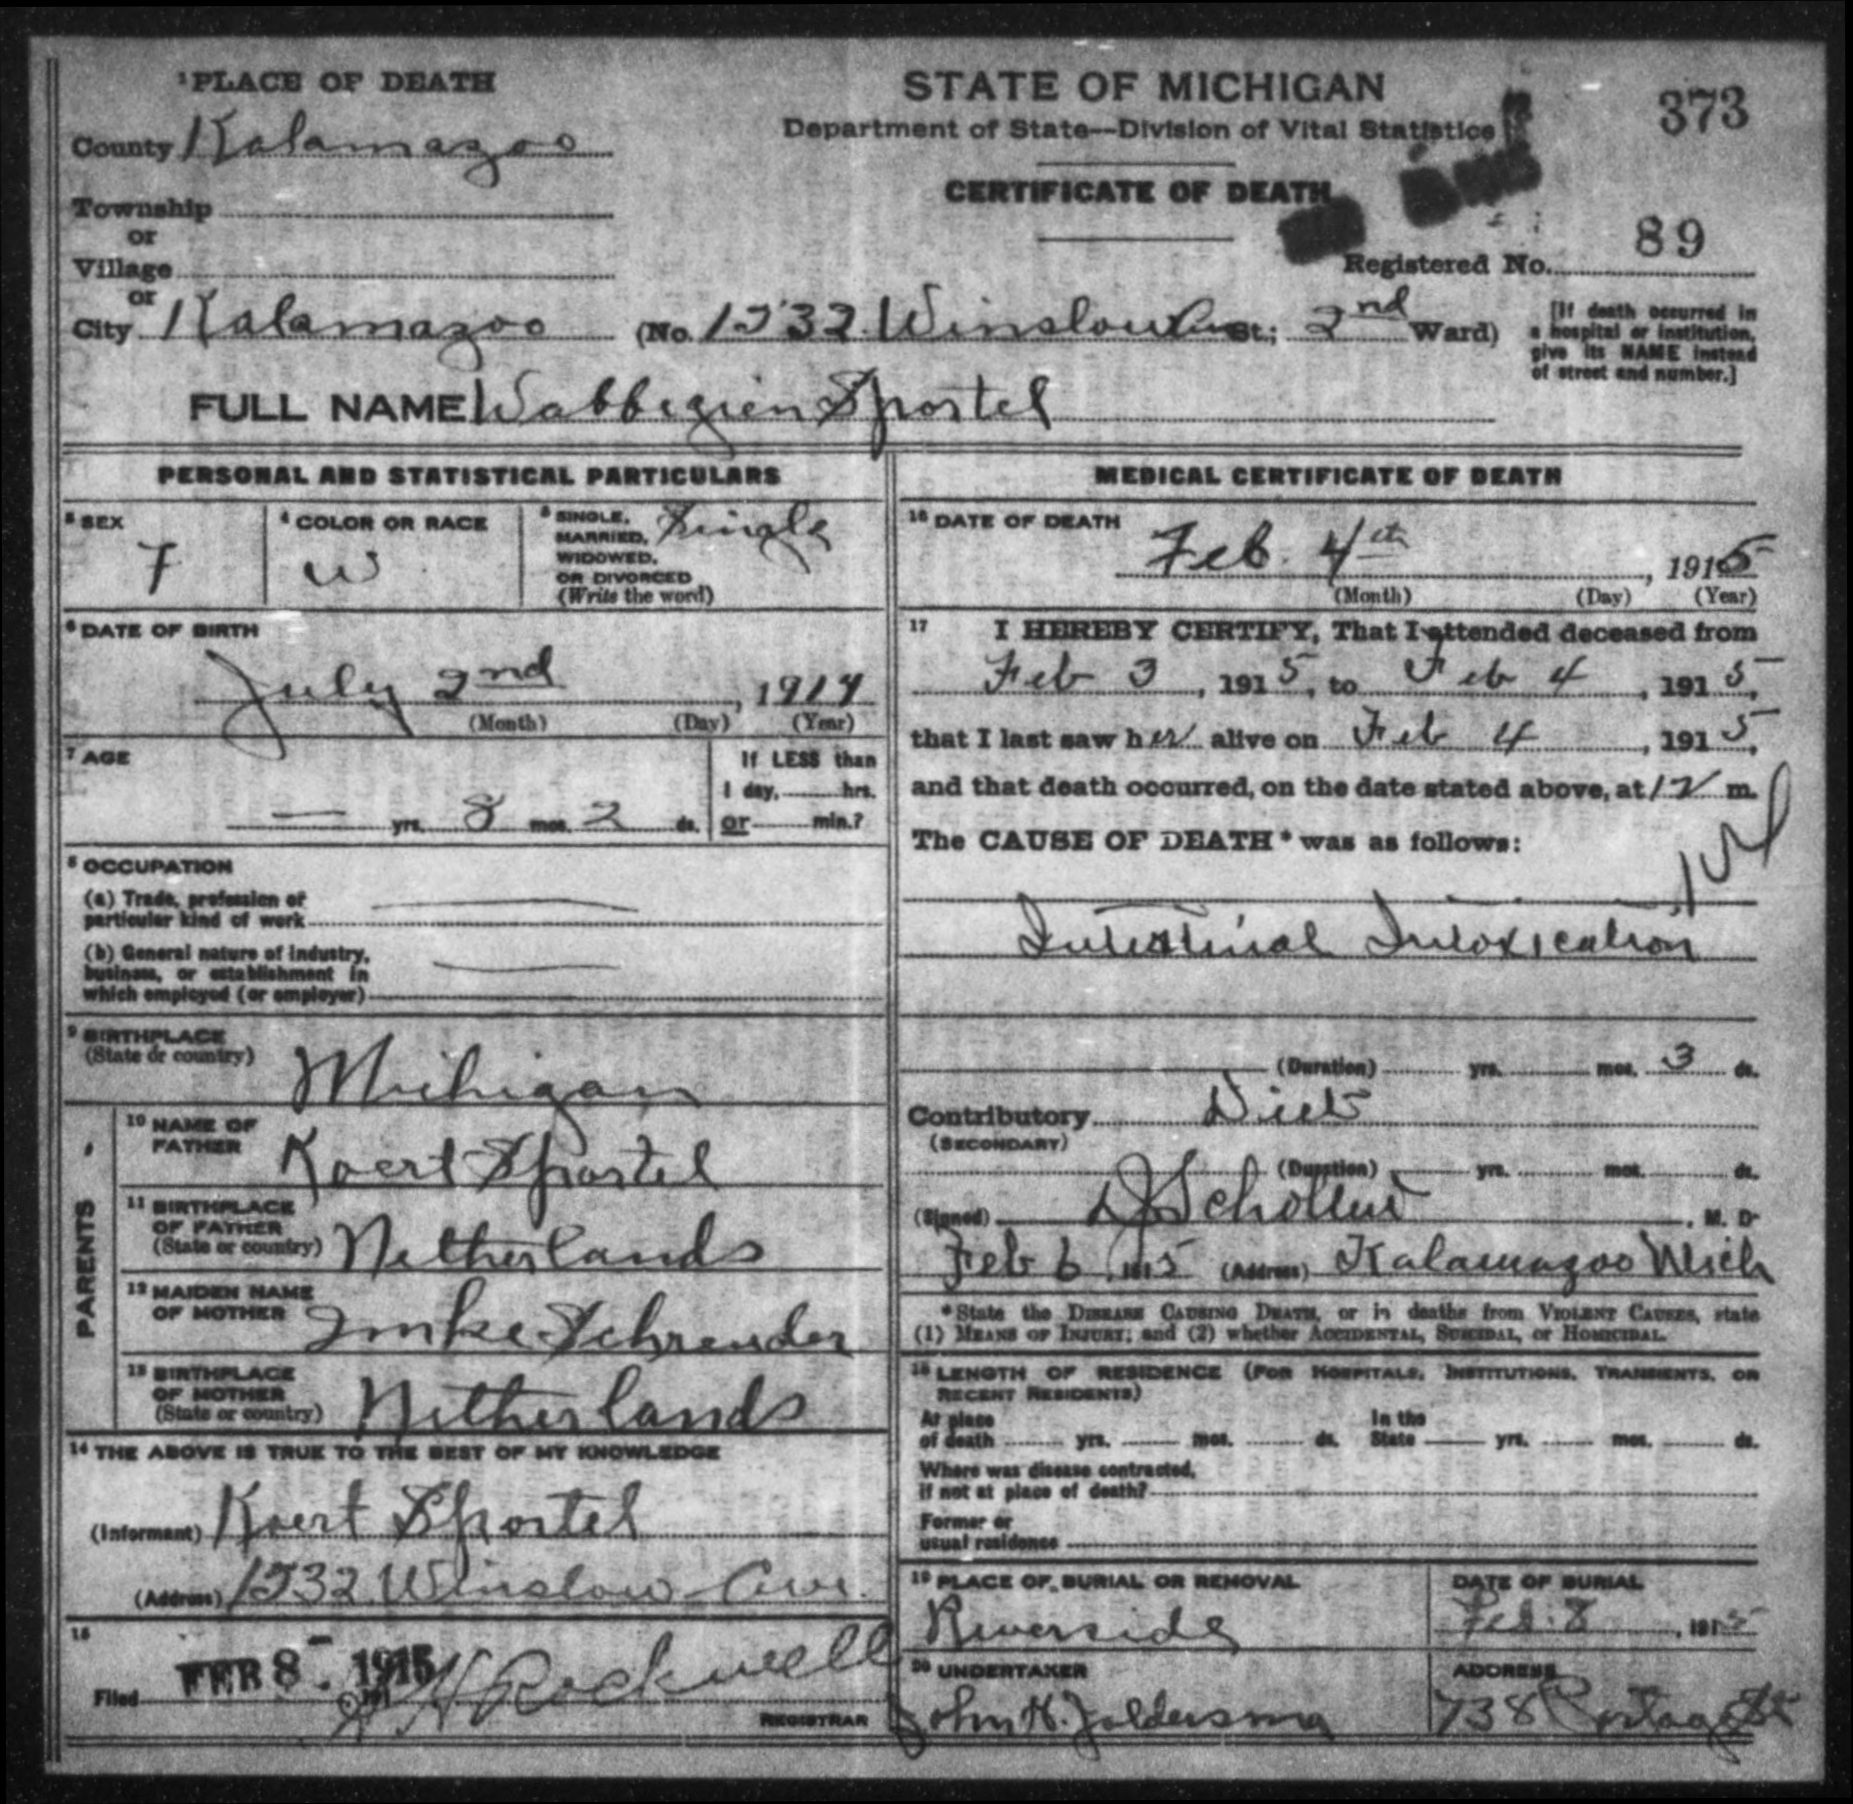 1 PLACE OF DEATH
County Kalamazoo
Township
or
Village
or
City Kalamazoo (No. 1532 Winslow Ave St.; 2nd Ward)
STATE OF MICHIGAN
Department of State—Division of Vital Statistics
CERTIFICATE OF DEATH
373
Registered No. 89
[If death occurred in
a hospital or institution,
give its NAME instead
of street and number.]
FULL NAME Wabbegien Spostel
PERSONAL AND STATISTICAL PARTICULARS
3 SEX
F
4 COLOR OR RACE
W
5 SINGLE,
MARRIED,
WIDOWED,
OR DIVORCED
(Write the word)
Single
6 DATE OF BIRTH
July 2nd, 1914
(Month) (Day) (Year)
7 AGE
— yrs. 8 mos. 2 ds.
If LESS than
1 day, hrs.
or min.?
8 OCCUPATION
(a) Trade, profession or
particular kind of work
(b) General nature of industry,
business, or establishment in
which employed (or employer)
9 BIRTHPLACE
(State or country)
Michigan
PARENTS
10 NAME OF
FATHER
Koert Spostel
11 BIRTHPLACE
OF FATHER
(State or country)
Netherlands
12 MAIDEN NAME
OF MOTHER
Imke Schreuder
13 BIRTHPLACE
OF MOTHER
(State or country)
Netherlands
14 THE ABOVE IS TRUE TO THE BEST OF MY KNOWLEDGE
(Informant) Koert Spostel
(Address) 1532 Winslow Ave.
15
Filed FEB 8 - 1915 Rockwell
REGISTRAR
MEDICAL CERTIFICATE OF DEATH
16 DATE OF DEATH
Feb. 4th, 1915
(Month) (Day) (Year)
17 I HEREBY CERTIFY, That I attended deceased from
Feb 3, 1915, to Feb 4, 1915,
that I last saw her alive on Feb 4, 1915,
and that death occurred, on the date stated above, at 12 m.
The CAUSE OF DEATH* was as follows:
Intestinal Intoxication
(Duration) yrs. mos. 3 ds.
Contributory Diet
(SECONDARY)
(Duration) yrs. mos. ds.
(Signed) D J Scholten, M. D.
Feb 6, 1915 (Address) Kalamazoo Mich
*State the DISEASE CAUSING DEATH, or in deaths from VIOLENT CAUSES, state
(1) MEANS OF INJURY; and (2) whether ACCIDENTAL, SUICIDAL, or HOMICIDAL.
18 LENGTH OF RESIDENCE (FOR HOSPITALS, INSTITUTIONS, TRANSIENTS, OR
RECENT RESIDENTS)
At place
of death yrs. mos. ds. In the
State yrs. mos. ds.
Where was disease contracted,
if not at place of death?
Former or
usual residence
19 PLACE OF BURIAL OR REMOVAL
Riverside
DATE OF BURIAL
Feb. 8, 1915
20 UNDERTAKER
John K. Joldersma
ADDRESS
738 Portage St